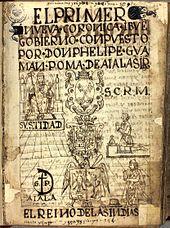 EL PRIMER
NVEVA CORONICA I BVE
GOBIERNO CONPVESTO
POR DON PHELIPE GVA
MAN POMA DE AIALA S I P
S.C.R.M.
SVSTIDAD
AIALA
EL REINO DE LAS INDIAS